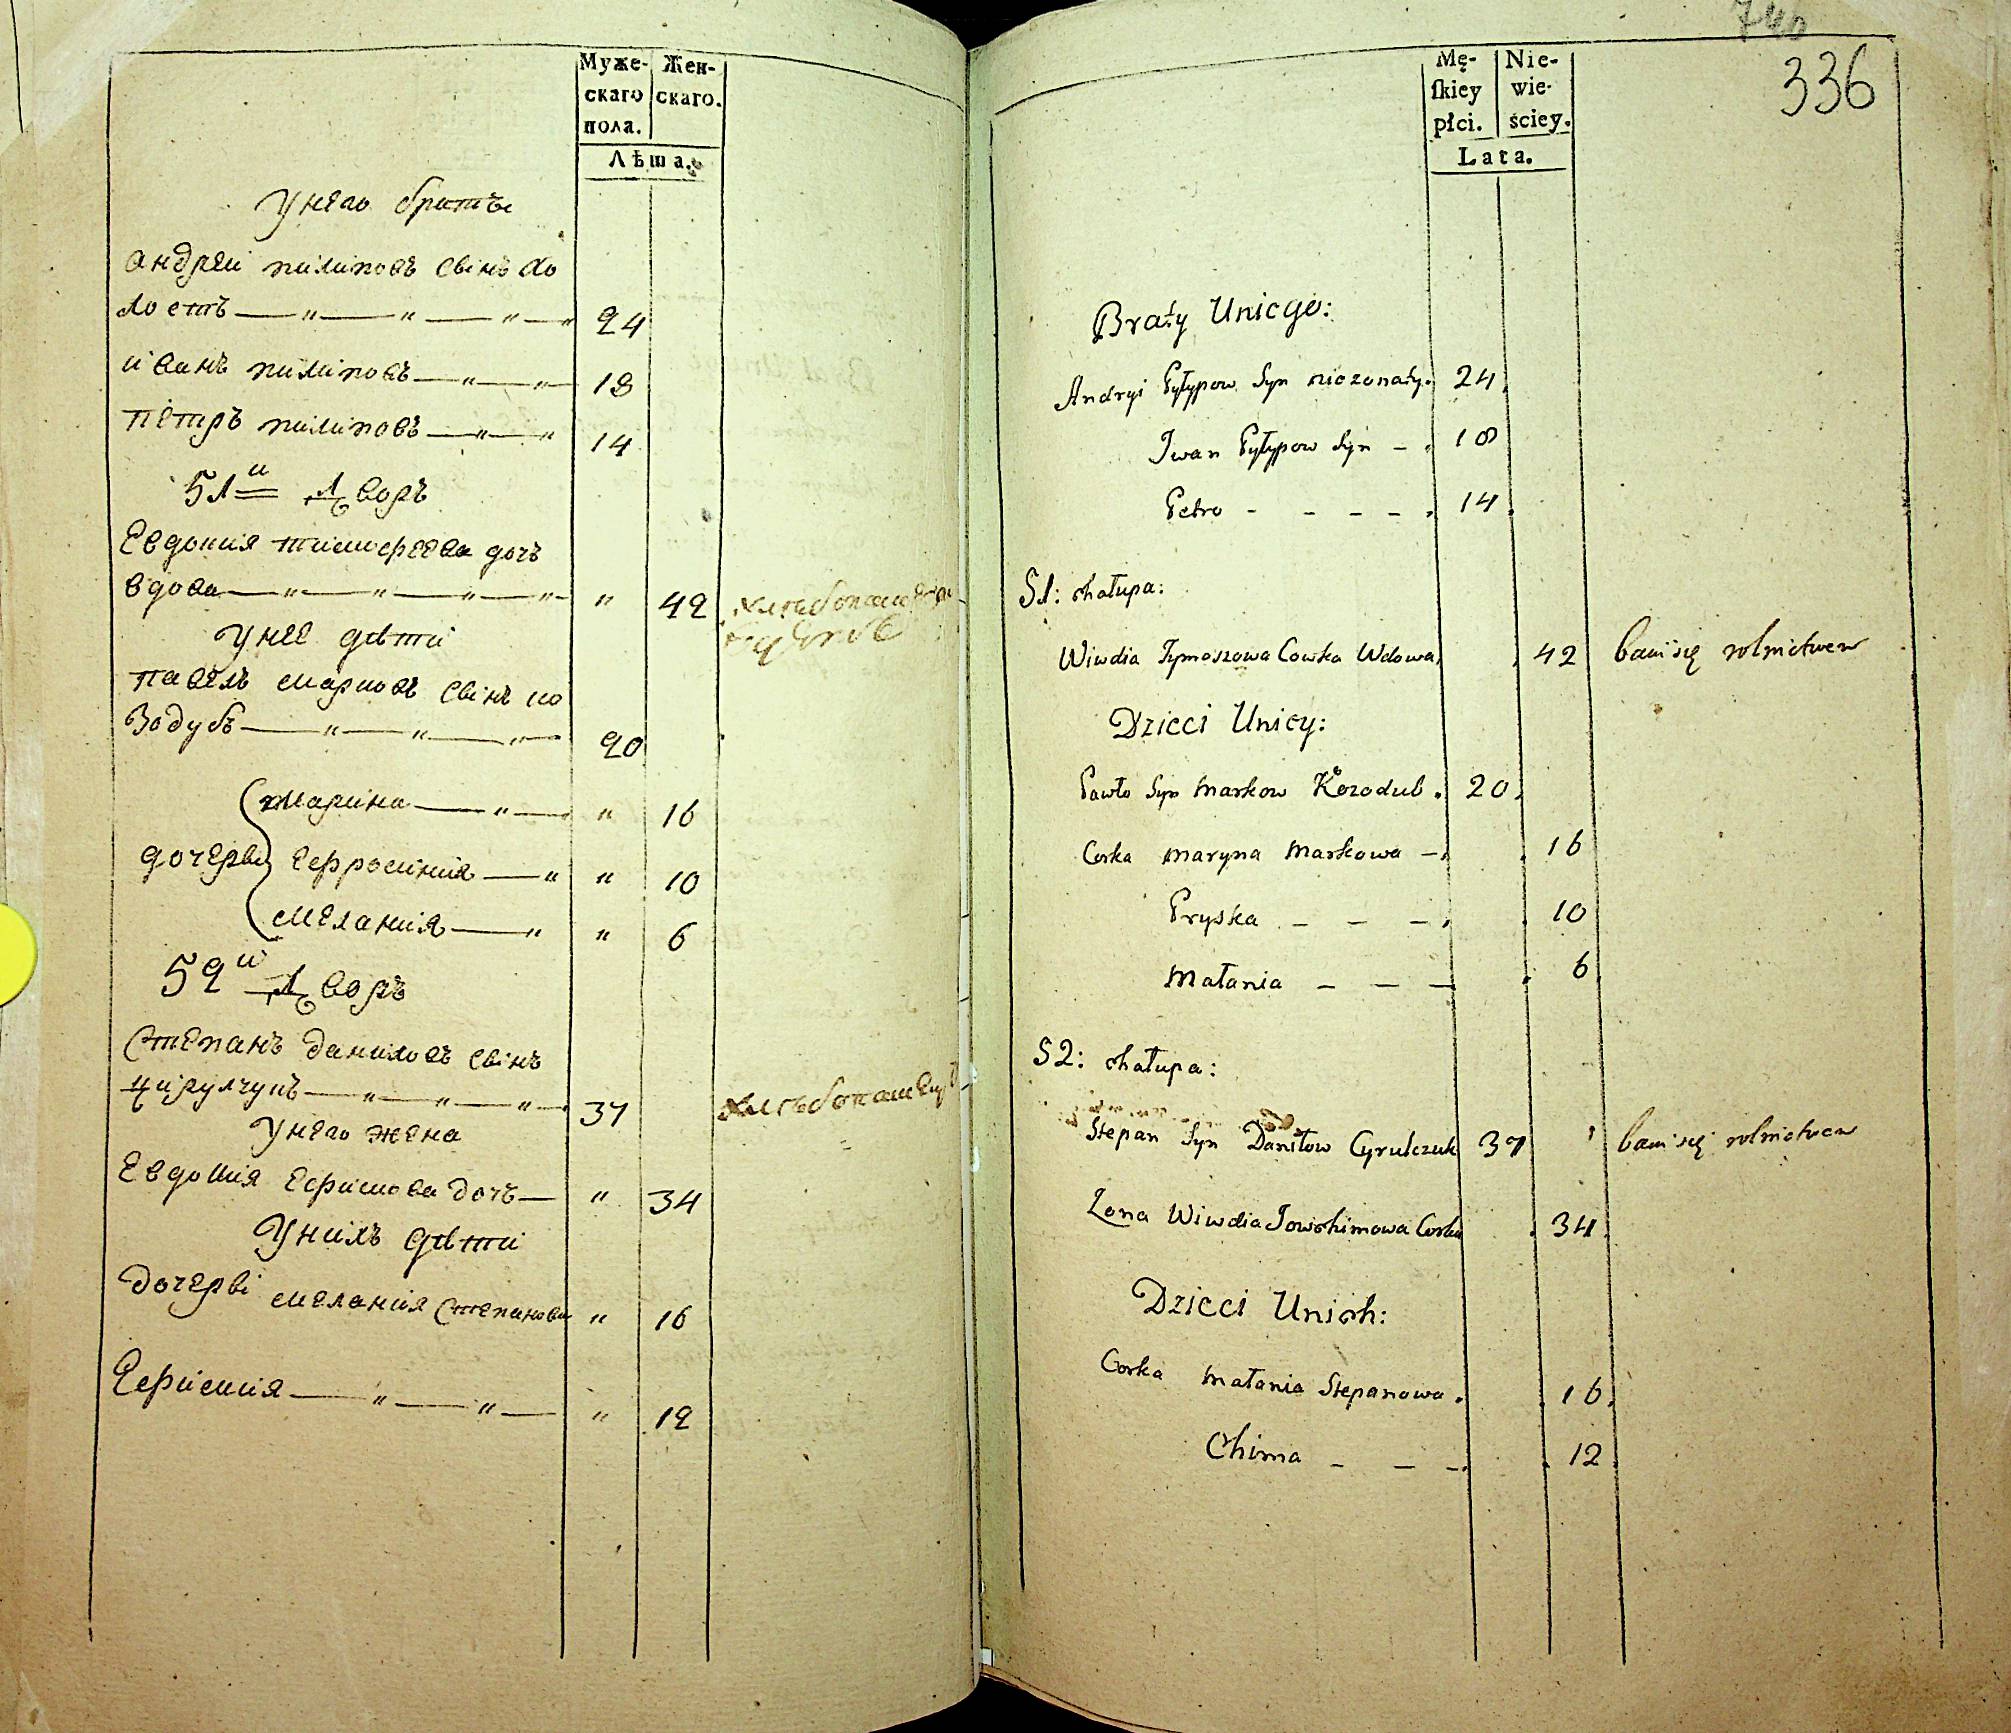 Муже-
скаго
пола.
Жен-
скаго.
Лѣта.
У него братъ
андрей пилиповъ свінъ хо
лостъ — " — " — " — " 24
иванъ пилиповъ — " — " 18
петръ пилиповъ — " — " 14
51й дворъ
Евдокия тимофеева дочь
вдова — " — " — " — " " 42 хлѣбопашец
У нее дѣти
павелъ марковъ свінъ ко
зодубъ — " — " — " 20
марина — " — " 16
дочерві ефросиния — " " 10
мелания — " " 6
52й дворъ
Степанъ даниловъ свінъ
цирулчукъ — " — " — " 37 хлѣбопашец
У него жена
Евдокия ефимова дочъ — " 34
У нихъ дѣти
дочерві мелания степанова " 16
Ефимия — " — " — " 12
740
336
Mę-
ſkiey
płci.
Nie-
wie-
ściey.
Lata.
Braty Uniego:
Andryi Pyłypow Syn niezonaty. 24.
Iwan Pyłypow Syn - . 18
Petro - - - - . 14.
51: chałupa:
Wiwdia Tymoszowa Cowka Wdowa. 42 bawi się rolnictwem
Dzieci Uniey:
Pawło Syn Markow Kozodub. 20.
Corka Maryna Markowa - . 16
Pryska - - - . 10
Małania - - - . 6
52: chałupa:
Stepan Syn Daniłow Cyrulczuk 37 bawi się rolnictwem
Zona Wiwdia Jowchimowa Corka . 34.
Dzieci Unich:
Corka Małania Stepanowa. 16.
Chima - - - . 12